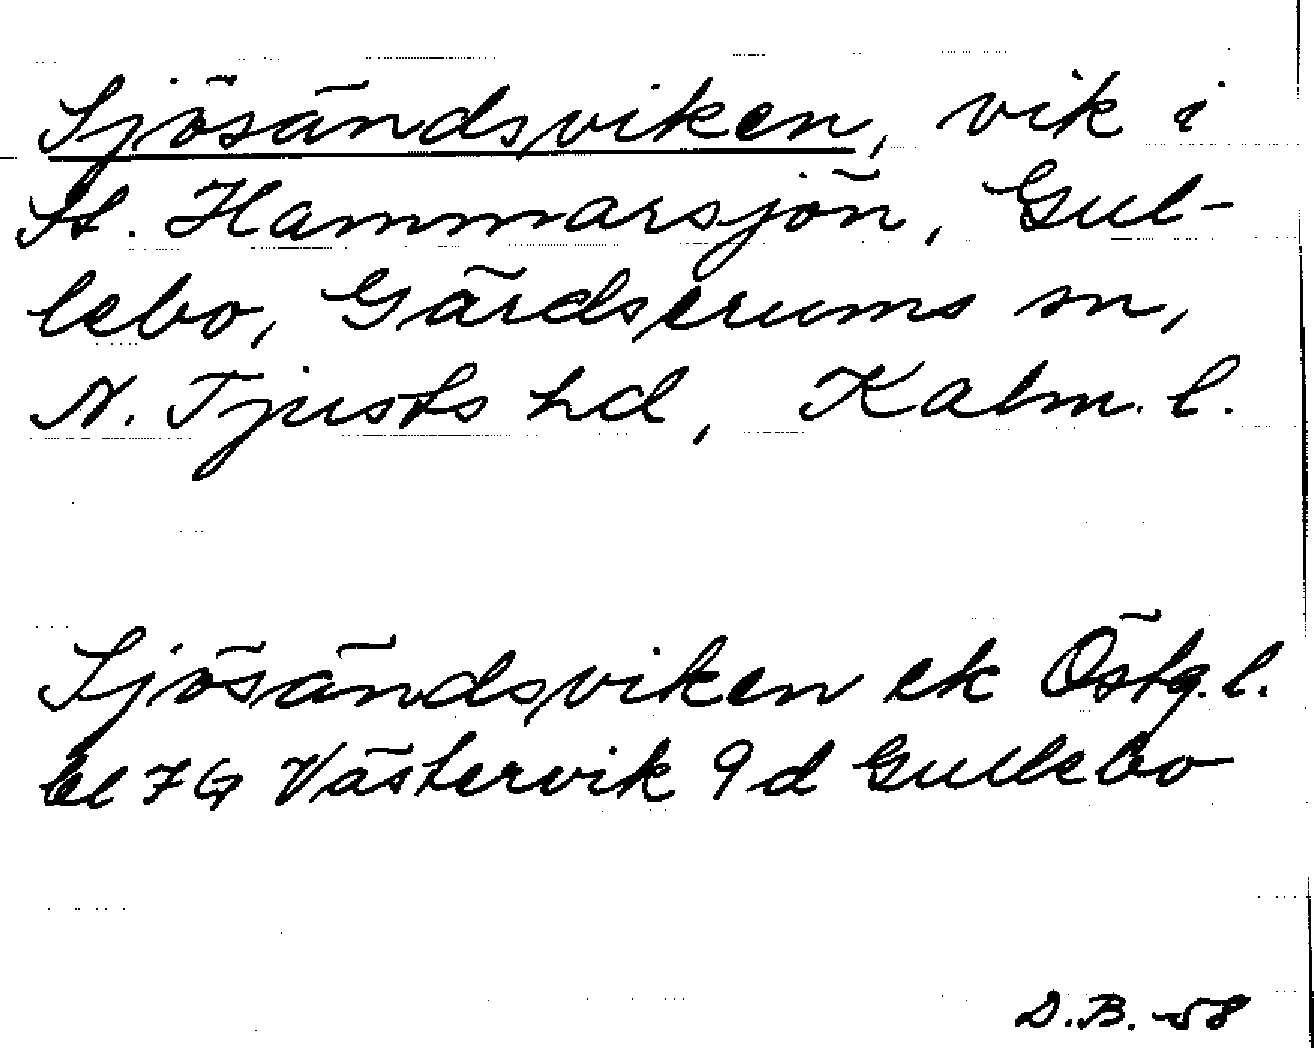 Sjösändsviken, vik i
St. Hammarsjön, Gul-
lebo, Gärdserums sn,
N. Tjusts hd, Kalm. l.
Sjösändsviken ek Östg. l.
bl 7G Västervik 9d Gullebo
D.B. -58